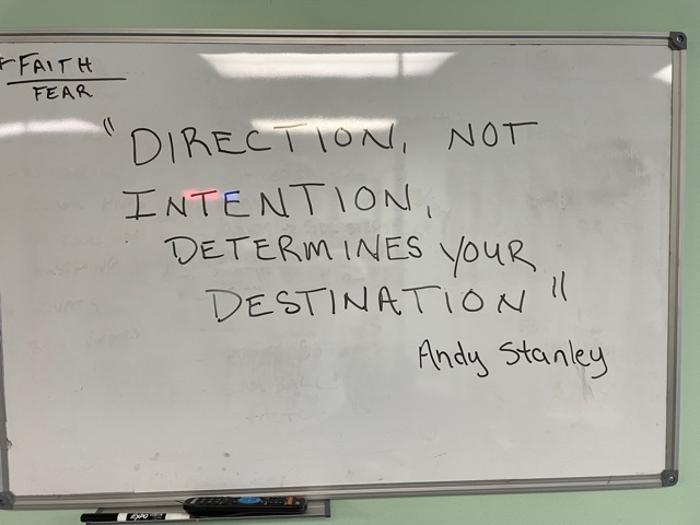 FAITH
FEAR
"DIRECTION, NOT
INTENTION,
DETERMINES YOUR
DESTINATION"
Andy Stanley
EXPO